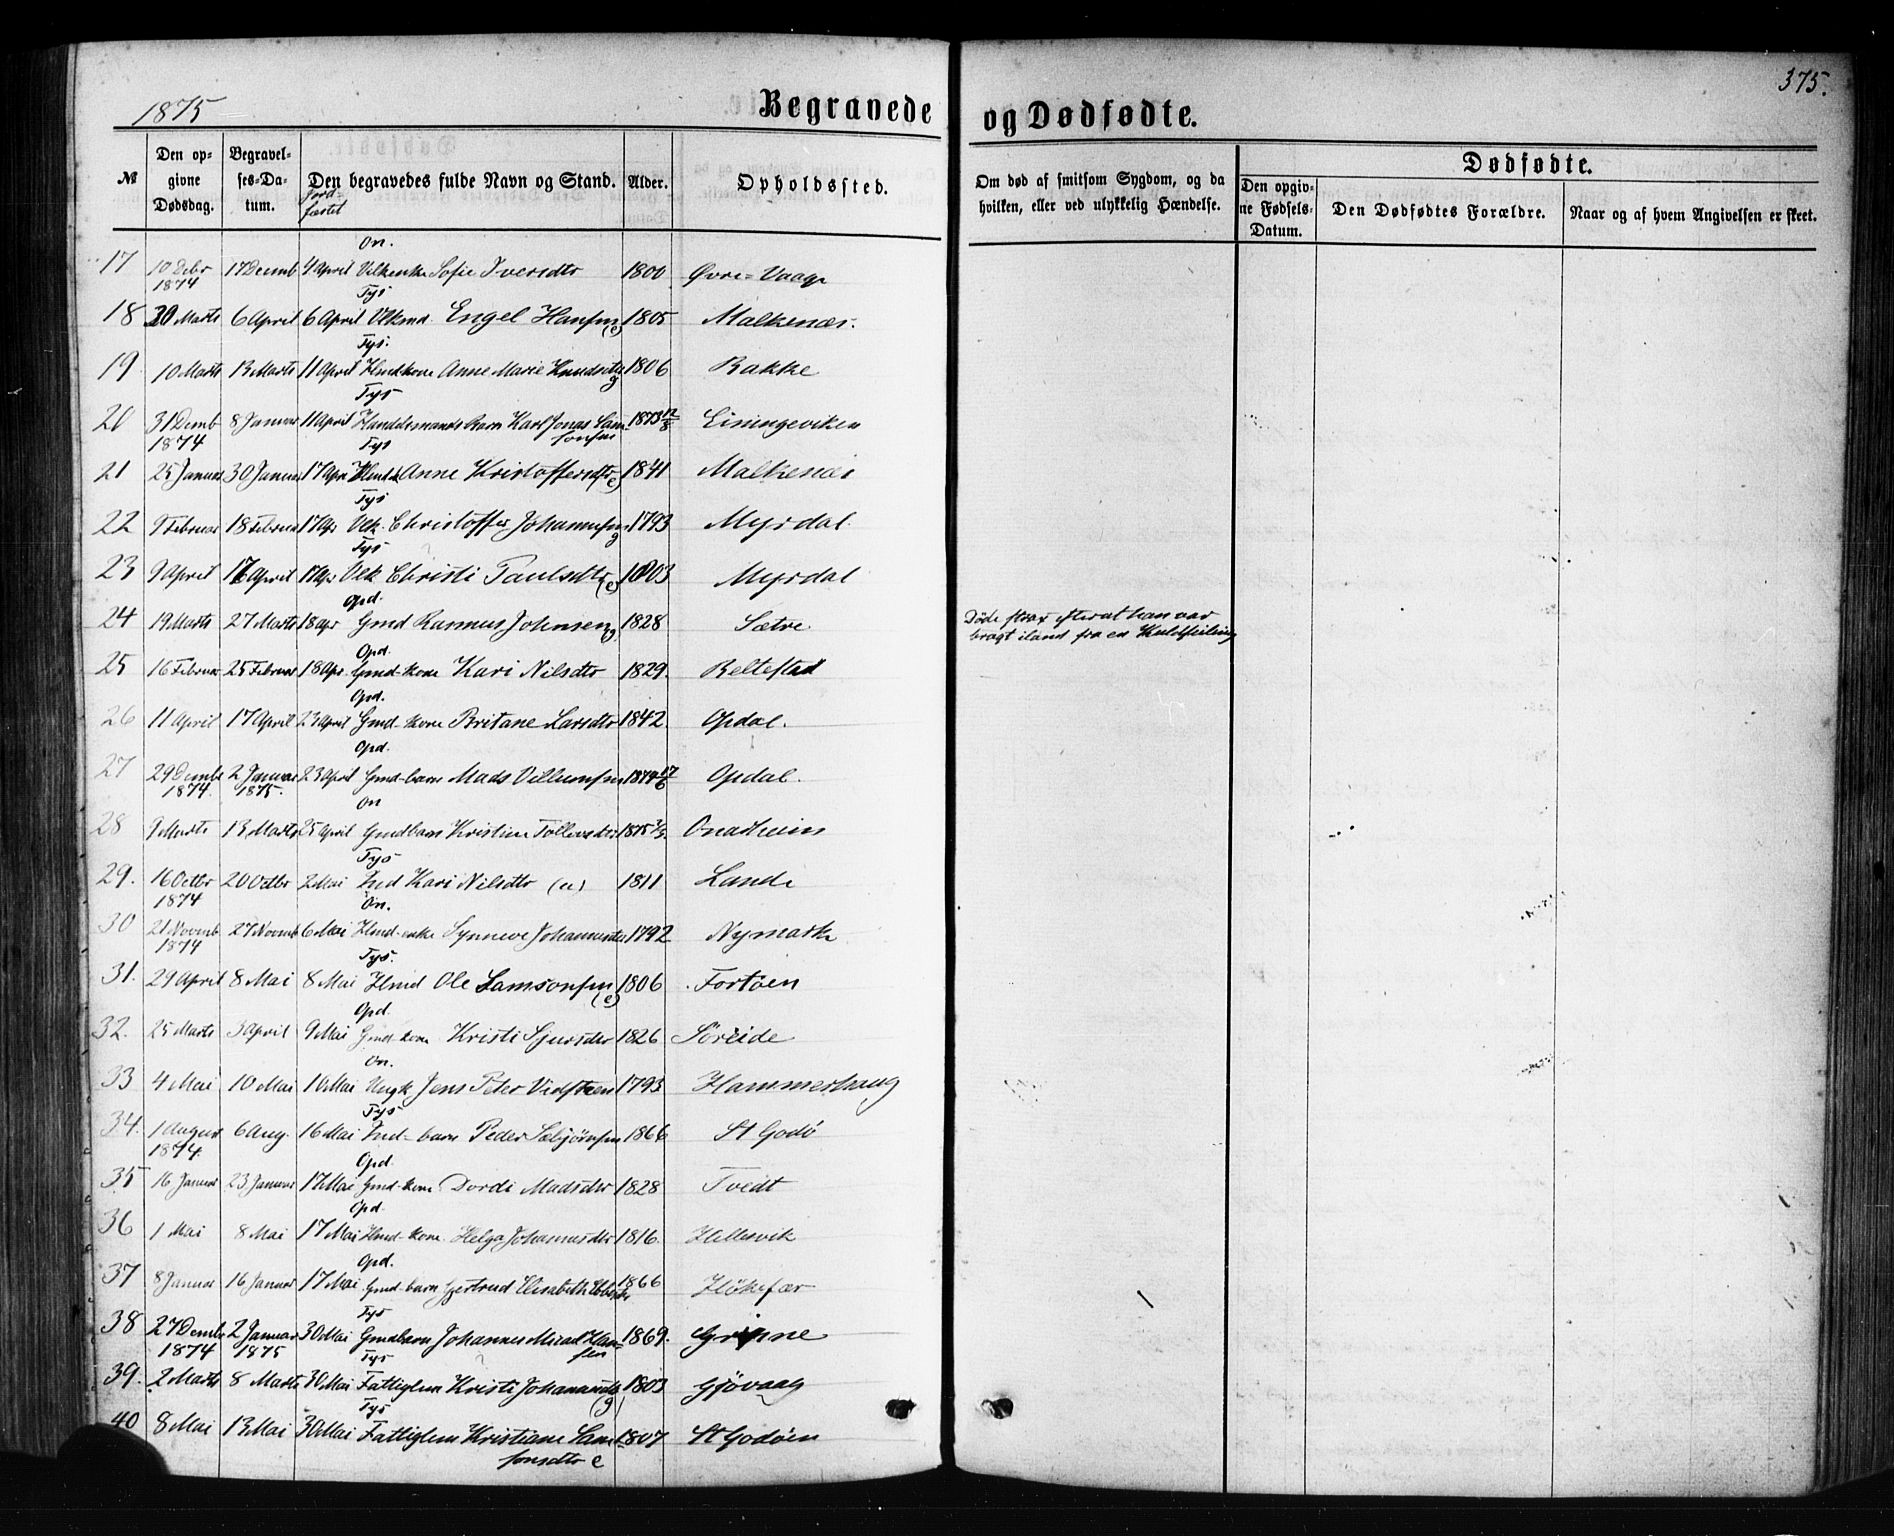 1875
Begravede og Dødfødte.
375.
№
Den opgivne Dødsdag.
Begravelses-Datum.
Den begravedes fulde Navn og Stand.
Jordfæstet
Alder.
Opholdssted.
Om død af smitsom Sygdom, og da hvilken, eller ved ulykkelig Hændelse.
Dødfødte.
Den opgivne Fødsels-Datum.
Den Dødfødtes Forældre.
Naar og af hvem Angivelsen er skeet.
On.
17 10 Debr 1874 17 Decemb 4 April Sofie Iversdtr 1800 Øvre-Vaage
Tys
18 30 Marts 6 April 6 April Engel Hansen (e) 1805 Malkenæs.
Tys.
19 10 Marts 13 Marts 11 April Hmdkone Anne Marie Knudsdtr g 1806 Bakke
Tys
20 31 Decemb 1874 8 Januar 11 April Handelsmands Barn Karl Jonas Samsonsen 1873 12/8 Einingeviken
Tys
21 25 Januar 30 Januar 17 Apr Anne Kristoffersdtr (e) 1841 Malkenæs
Tys
22 9 Februar 18 Februar 17 Apr Vlk. Christoffer Johannesen g 1793 Myrdal
Tys
23 9 April 17 April 17 Apr Vlk Christi Paulsdtr (e) 1803 Myrdal
Opd.
24 19 Marts 27 Marts 18 Apr Gmd Rasmus Johnsen g 1828 Sætre
Døde strax efterat han var
bragt iland fra en Kuldseiling
Opd.
25 16 Februar 25 Februar 18 Apr. Gmd-kone Kari Nilsdtr 1829. Beltestad
Opd.
26 11 April 17 April 23 April Gmd-kone Britane Larsdtr 1842 Opdal.
Opd.
27 29 Decembr 1874. 2 Januar 1875. 23 April Gmd-barn Mads Villumsen 1874 17/6 Opdal.
On
28 9 Marts 13 Marts 25 April Gmdbarn Kristine Tollevsdtr 1875 Onarheim
Tys
29. 16 Octbr 1874 20 Octbr 2 Mai Ind Kari Nilsdtr (u) 1811 Lande
On.
30 21 Novemb 1874 27 Novemb 6 Mai Hmd-enke Synneve Johannesdtr 1792 Nymark
Tys.
31. 29 April 8 Mai 8 Mai Hmd Ole Samsonsen (e) 1806 Fortøen
Opd
32. 25 Marts 3 April 9 Mai Gmd-kone Kristi Sjursdtr 1826 Søreide
On.
33 4 Mai 10 Mai 10 Mai Ungk Jens Peter Vidsteen 1793 Hammerhaug
Tys
34. 1 August 1874. 6 Aug. 16 Mai Ind-barn Peder Sæbjørnsen 1866 St Godø
Opd.
35 16 Januar 23 Januar 17 Mai Gmd-kone Dordi Madsdtr 1828 Tvedt
Opd
36 1 Mai 8 Mai 17 Mai Hmd-kone Helga Johannesdtr 1816. Hellesvik
Opd.
37 8 Januar 16 Januar 17 Mai Gmd-barn Gjertrud Elisabeth 1866 Høkefær
Tys
38 27 Decembr 1874 2 Januar 1875 30 Mai Gmdbarn Johannes Mikael Hansen 1869. Grinne
Tys
39. 2 Marts 8 Marts 30 Mai Fattiglem Kristi Johannesdtr (g) 1803 Gjøvaag
Tys
40 8 Mai 13 Mai 30 Mai Fattiglem Kristiane Samsonsdtr e 1807 St Godøen